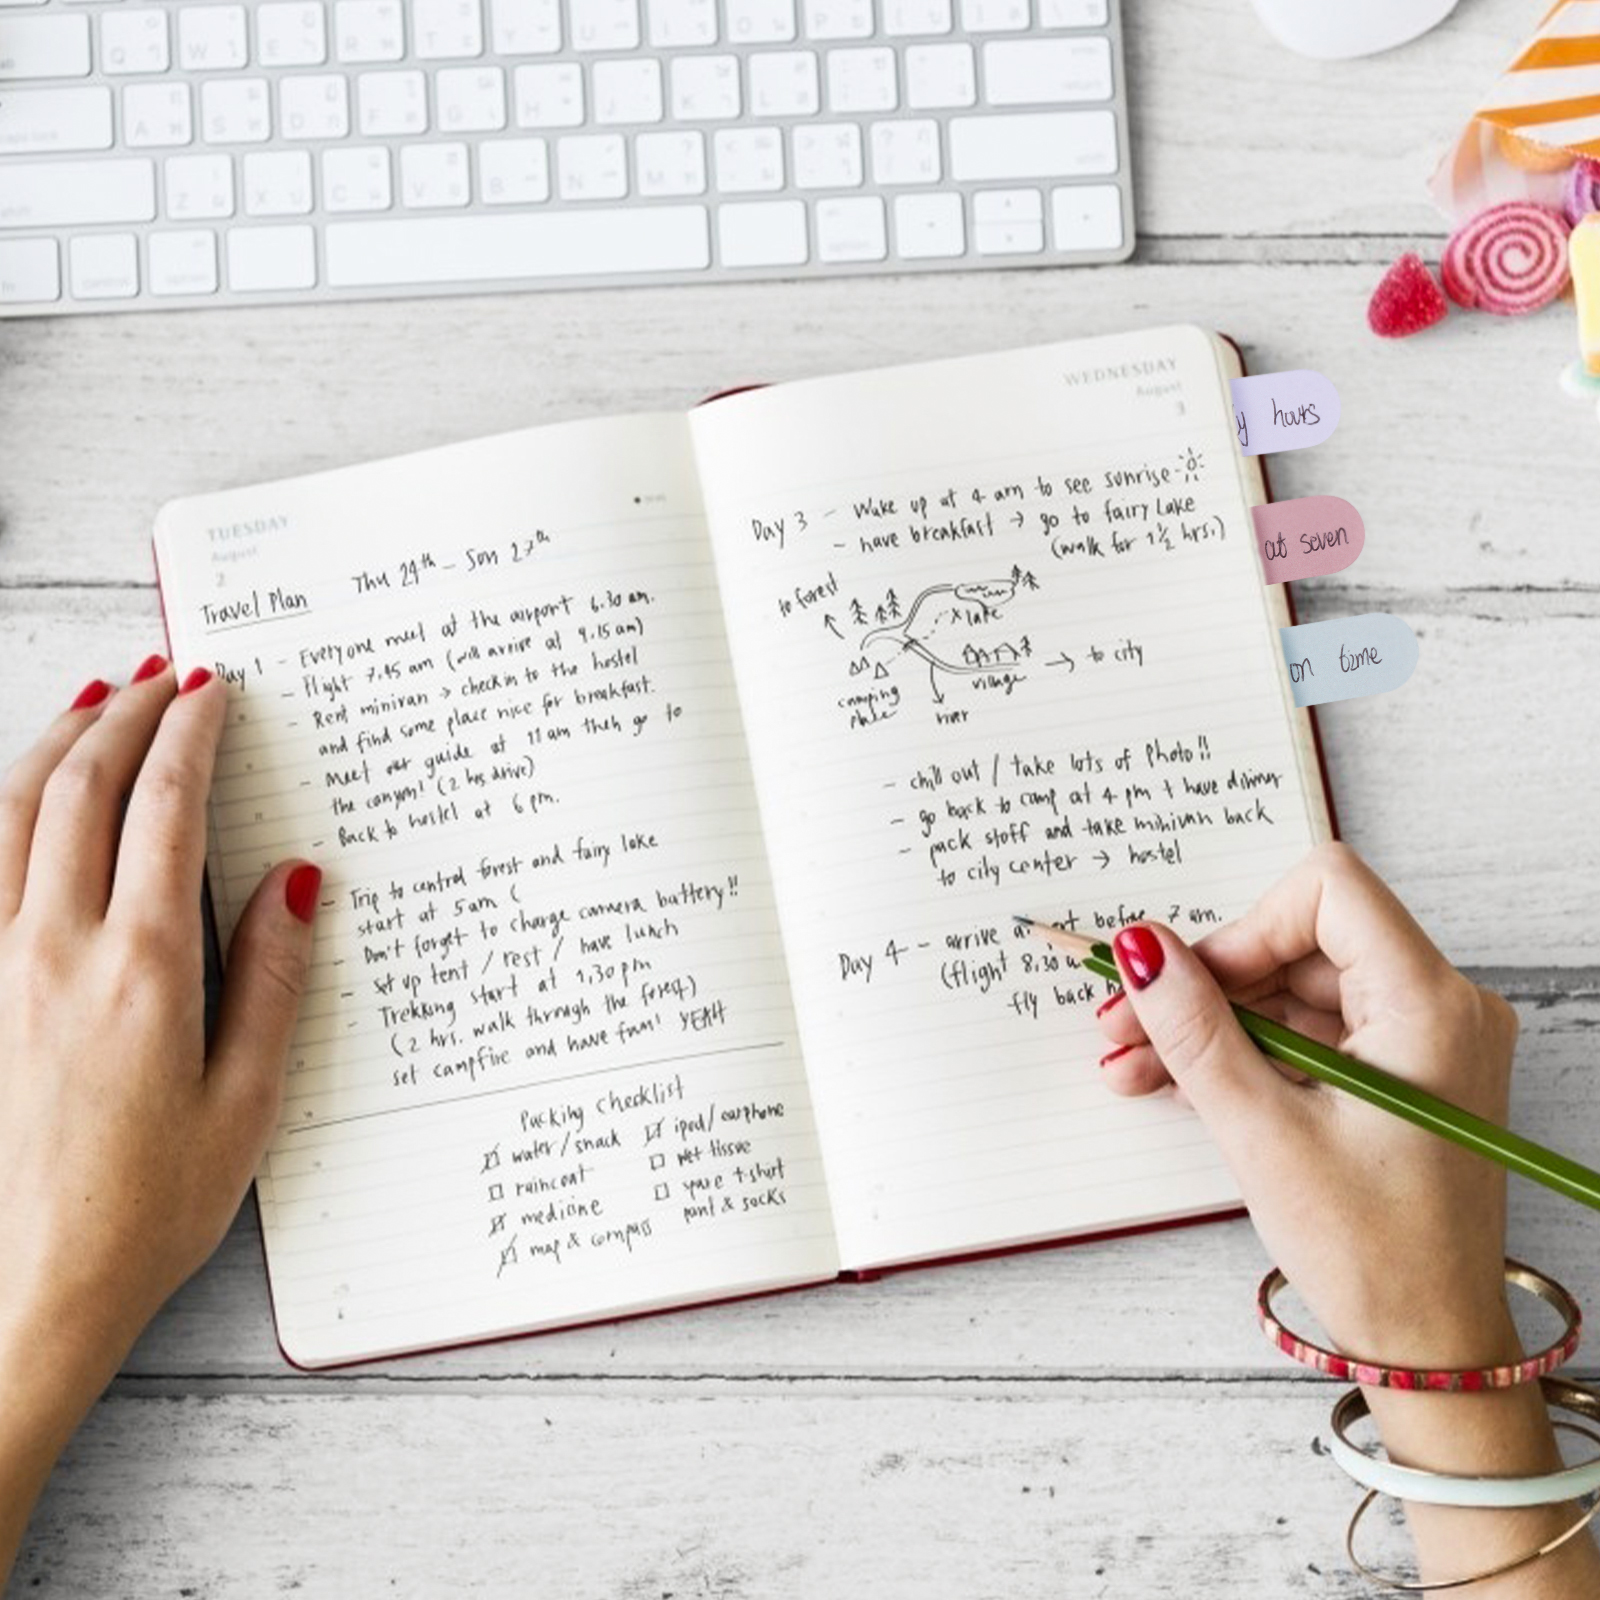 TUESDAY
August
2
Travel Plan
Thu 24th - Sun 27th
Day 1 - Everyone meet at the airport 6.30 am.
- Flight 7.45 am (will arrive at 9.15 am)
- Rent minivan → check in to the hostel
and find some place nice for breakfast.
- Meet our guide at 11 am then go to
the canyon! (2 hrs drive)
- Back to hostel at 6 pm.
- Trip to central forest and fairy lake
start at 5 am (
- Don't forget to charge camera battery!!
- Set up tent / rest / have lunch
- Trekking start at 1,30 pm
(2 hrs. walk through the forest)
set campfire and have fun! YEAH
Packing Checklist
water / snack
raincoat
medicine
map & compass
ipod / earphone
wet tissue
spare t-shirt
pant & socks
WEDNESDAY
August
3
Day 3 - Wake up at 4 am to see sunrise
- have breakfast → go to fairy Lake
(walk for 1½ hrs.)
to forest
x lake
→ to city
village
camping
place
river
- chill out / take lots of photo!!
- go back to camp at 4 pm + have dinner
- pack stuff and take minivan back
to city center → hostel
Day 4 - arrive before 7 am.
(flight 8,30
fly back
y hours
at seven
on time